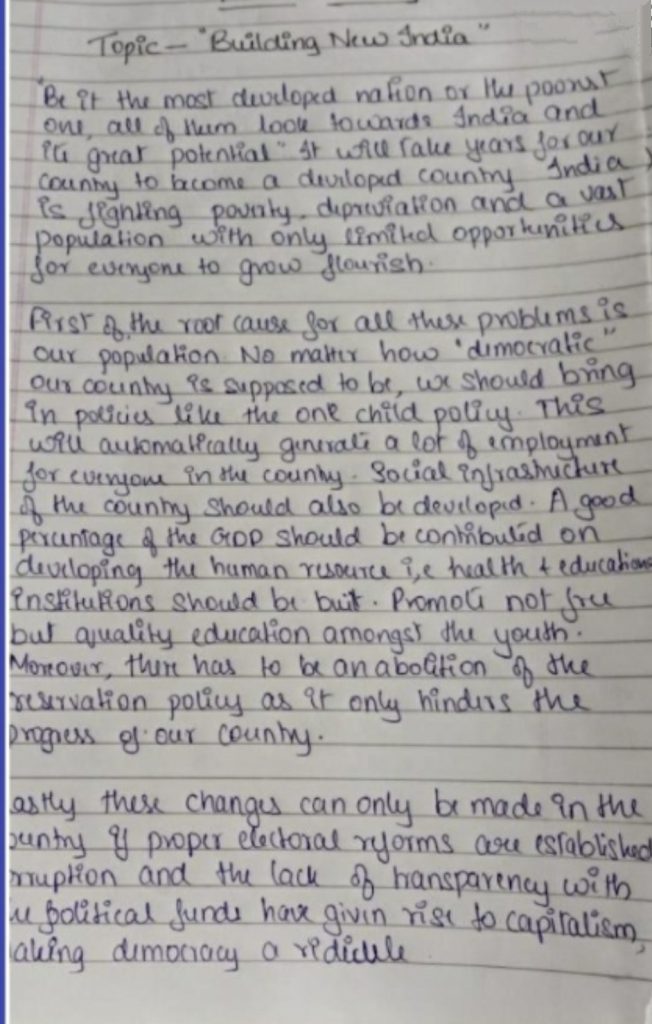 Topic - "Building New India"
"Be it the most developed nation or the poorest
one, all of them look towards India and
its great potential" It will take years for our
country to become a developed country India
is fighting poverty, depreviation and a vast
population with only limited opportunities
for everyone to grow flourish.
First of the root cause for all these problems is
our population. No matter how "democratic"
our country is supposed to be, we should bring
in policies like the one child policy. This
will automatically generate a lot of employment
for everyone in the country. Social infrastructure
of the country should also be developed. A good
percentage of the GDP should be contributed on
developing the human resource i,e health & educations
institutions should be buit. Promote not free
but quality education amongst the youth.
Moreover, there has to be an abolition of the
reservation policy as it only hinders the
progress of our country.
astly these changes can only be made in the
ountry if proper electoral reforms are established
rruption and the lack of transparency with
e political funds have given rise to capitalism,
aking democracy a ridicule